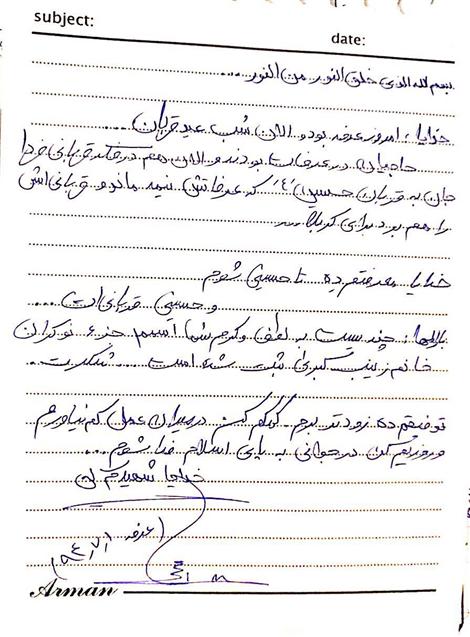 subject:
date:
بسم الله الذی خلق النور من النور ....
خدایا، امروز عرفه بود و الان شب عید قربان
حاجیان در عرفات بودند و الان هم در فکر قربانی فردا
جان به قربان حسین "ع" که عرفاتش نیمه ماند و قربانی‌اش
را هم برد برای کربلا...
خدایا معرفتم ده تا حسینی شوم
و حسینی قربانی‌ات ....
بارالها، چند است به لطف و کرم شما اسمم جزء نوکران
خانم زینب کبری ثبت شده است .... شکرت..
توفیقم ده زودتر بروم کمکم کن در میدان عمل کم نیاورم
و روزیم کن در جوانی به پای اسلام فدا شوم...
خدایا شهیدم کن
(عرفه ۹۴,۷,۱)
Arman